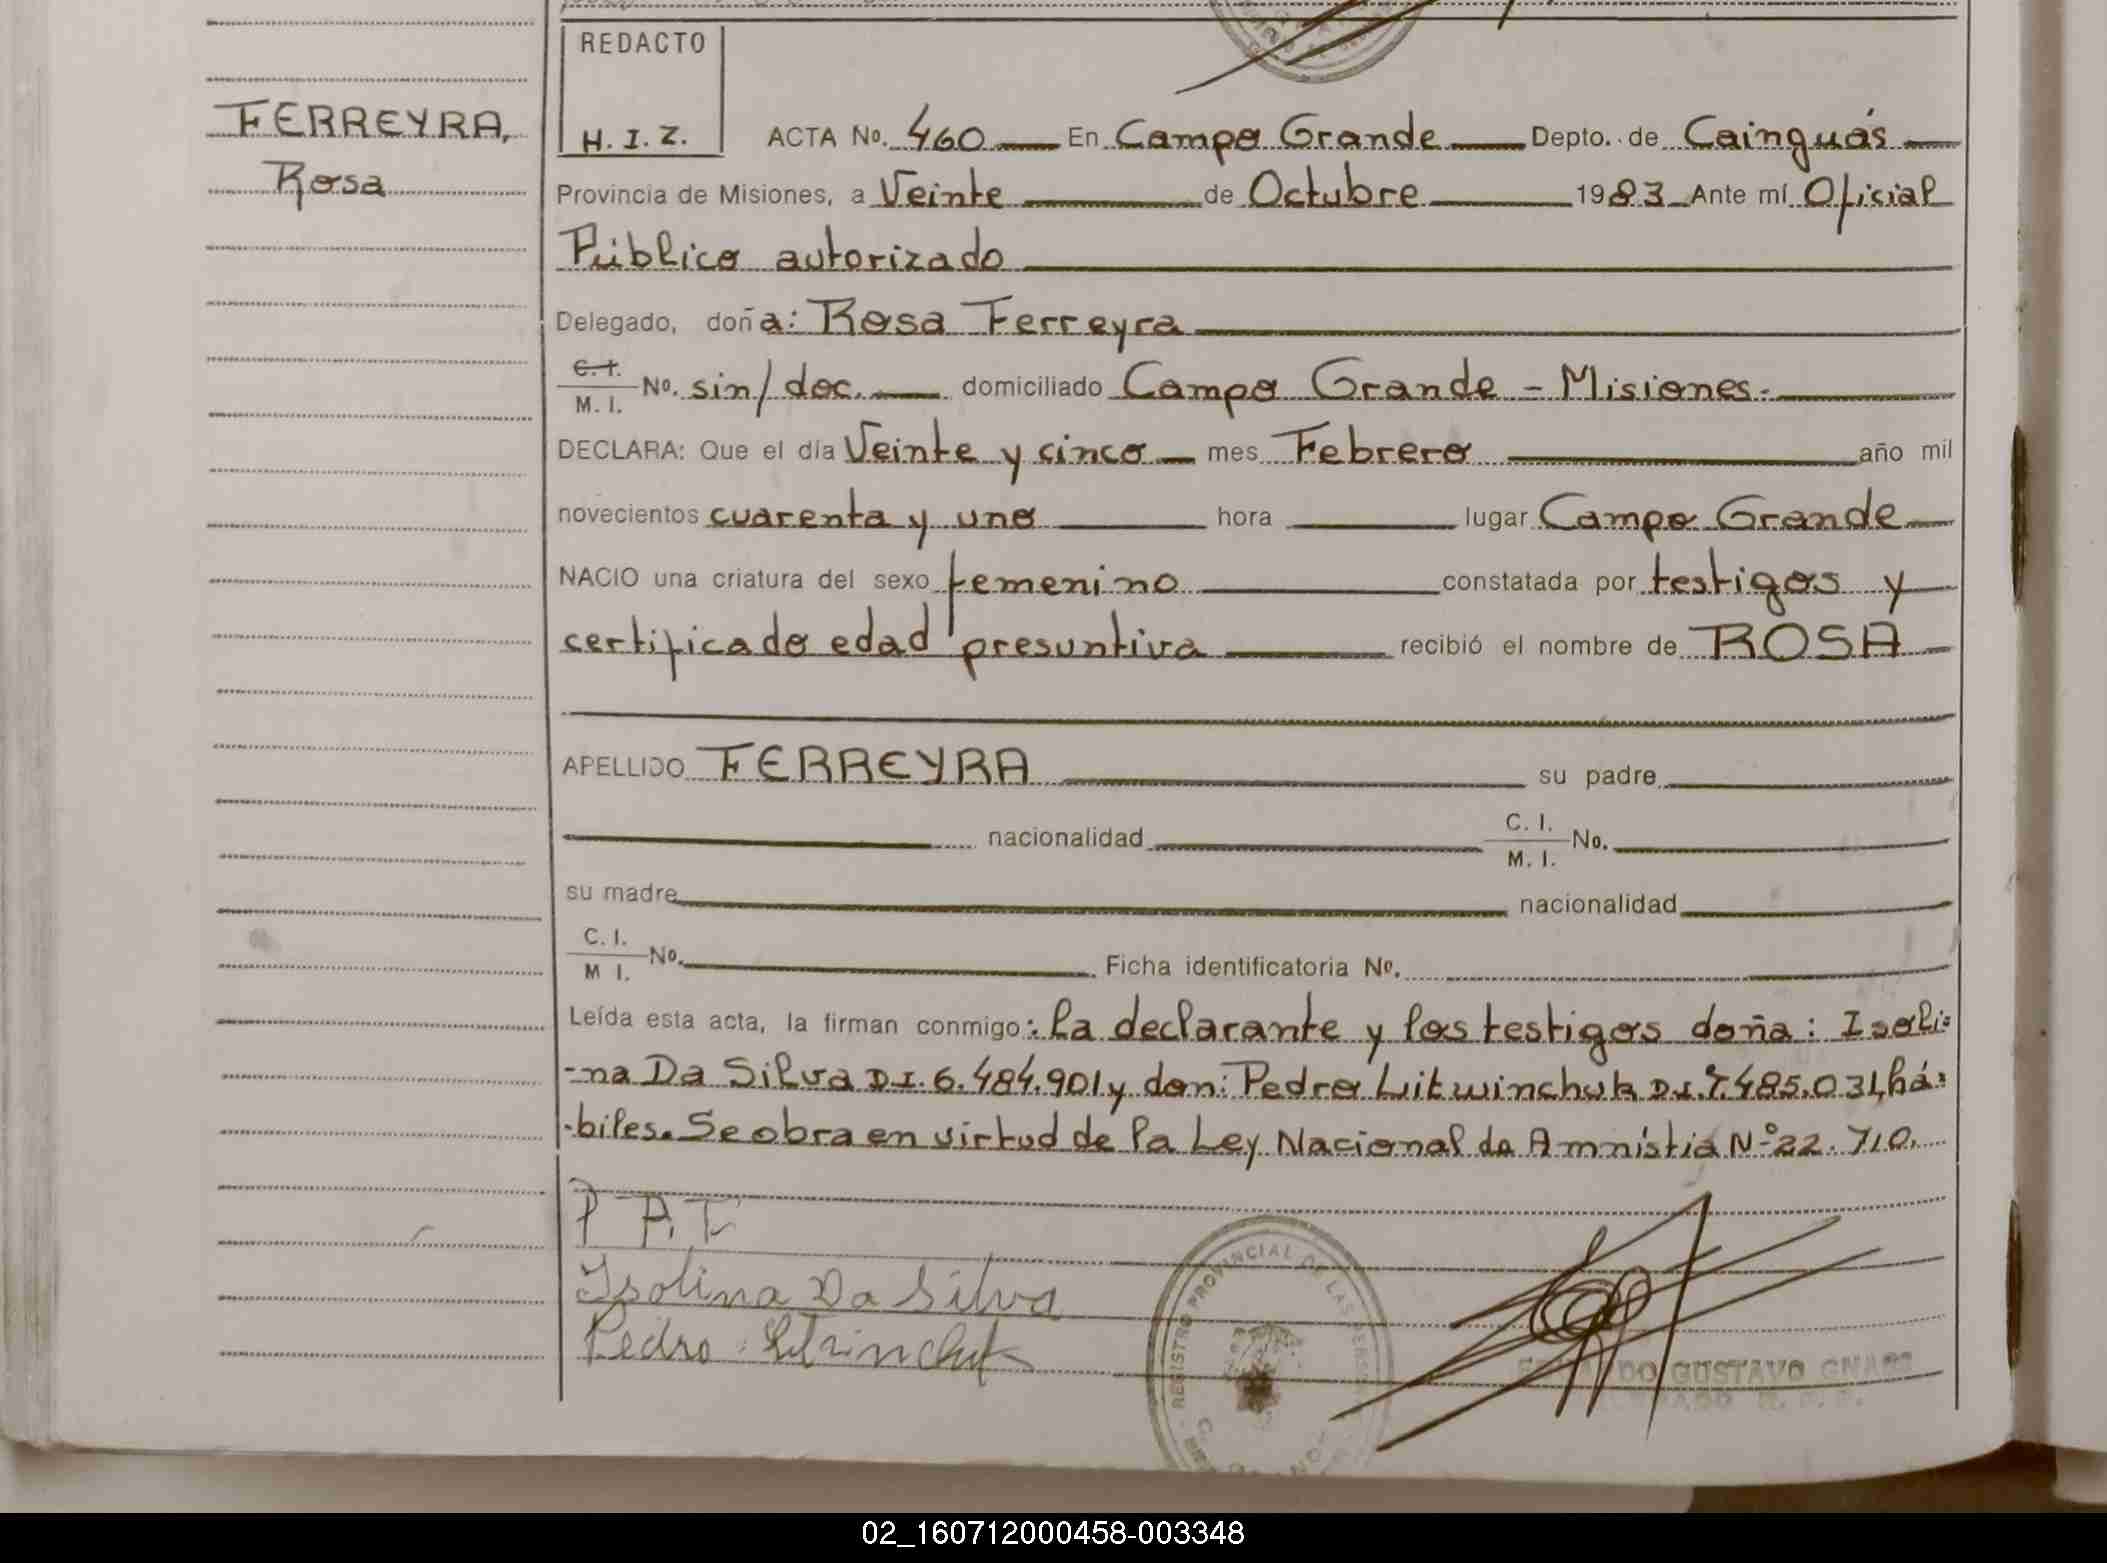 REDACTO
H. I. Z.
FERREYRA,
Rosa
ACTA No. 460 En Campo Grande Depto. de Cainguás
Provincia de Misiones, a Veinte de Octubre 1983 Ante mí Oficial
Público autorizado
Delegado, doña: Rosa Ferreyra
C. I.
M. I.
No. sin/doc. domiciliado Campo Grande - Misiones.
DECLARA: Que el día Veinte y cinco mes Febrero año mil
novecientos cuarenta y uno hora lugar Campo Grande
NACIO una criatura del sexo femenino constatada por testigos y
certificado edad presuntiva recibió el nombre de ROSA
APELLIDO FERREYRA su padre
nacionalidad C. I.
M. I.
No.
su madre nacionalidad
C. I.
M I.
No. Ficha identificatoria No.
Leída esta acta, la firman conmigo: la declarante y los testigos doña: Isoli=
-na Da Silva D.I. 6.484.901 y don: Pedro Litwinchuk D.I. 7.485.031, há=
-biles. Se obra en virtud de la Ley Nacional de Amnistía Nº 22.710.
Isolina Da Silva
Pedro
REGISTRO PROVINCIAL DE LAS
GUSTAVO
02_160712000458-003348